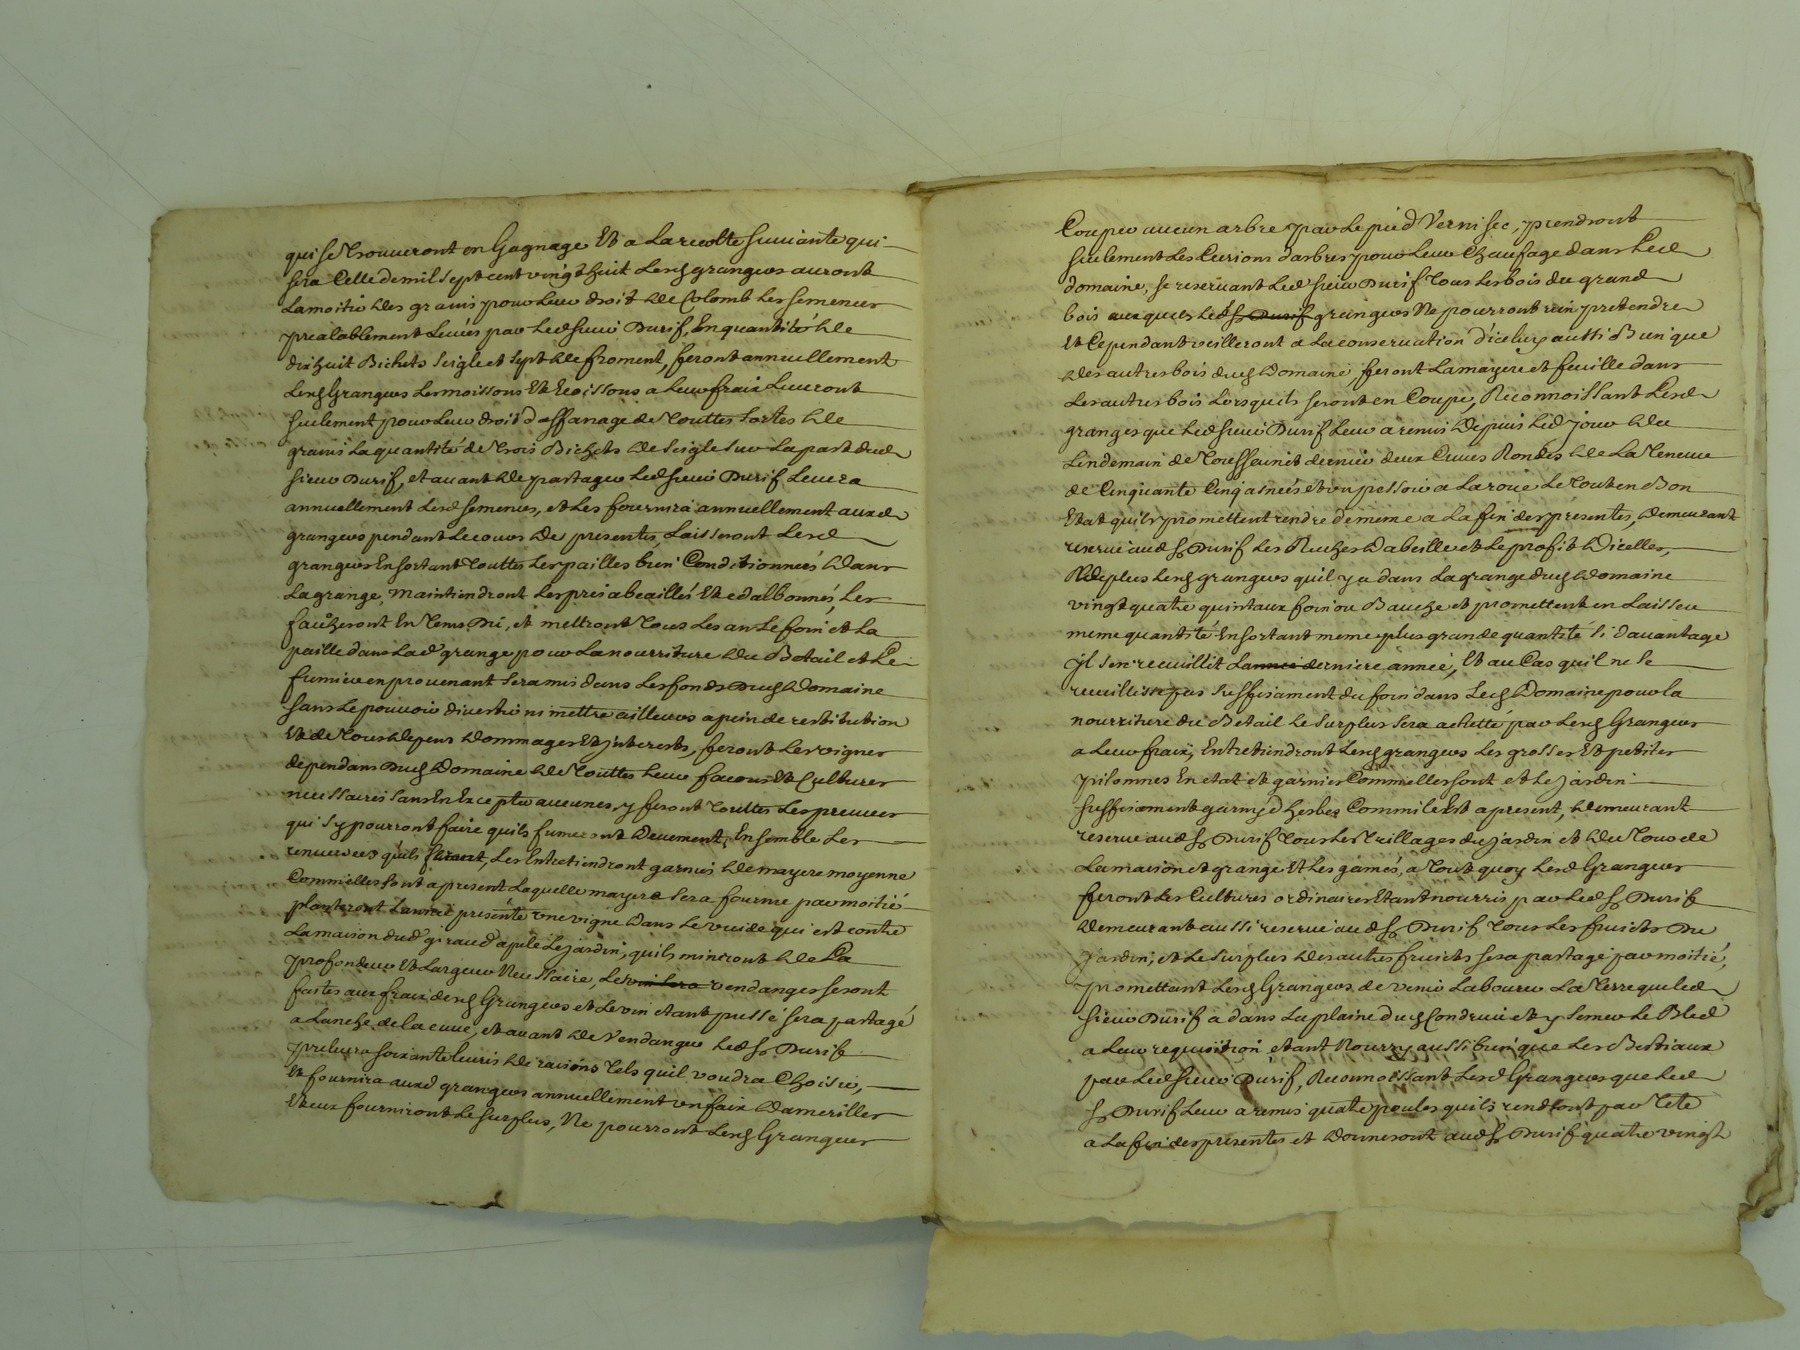 qui se trouveront en Gagnage Et a La recolte suivante qui
sera Celle de mil sept cent vingt huit Lesd grangers auront
La moitié des grains pour Leur droit de Colomb Les semences
prealablement Levées par Led sieur Durif, En quantité de
dix huit Bichets seigle et sept de froment, feront annuellement
Lesd Grangers Les moissons Et Ecossons a Leur fraix Leveront
seulement pour Leur droit daffanage de Touttes sortes de
grains La quantité de Trois Bichets de seigle sur La part dud
sieur Durif, et avant de partager Led sieur Durif Levera
annuellement Lesd semences, et Les fournira annuellement auxd
grangers pendant Le cours de presentes, Laisseront Lesd
grangers En sortant Touttes Les pailles bien Conditionnées dans
La grange, maintiendront Les prés abeaillés Et edalbonnés, Les
faucheront En Tems Du, et mettront Tous Les ans Le foin et La
paille dans Lad grange pour La nourriture du Betail et Le
fumier en provenant sera mis dans Les fonds Dud Domaine
sans Le pouvoir divertir ni mettre ailleurs a peine de restitution
Et de Tous depens dommages Et interests, feront Les vignes
dependans Dud Domaine de Touttes Leur facons Et Cultures
necessaires sans En Excepter aucunes, y feront Touttes Les preuves
qui s'y pourront faire quils fumeront Deuement, Ensemble Les
renversées quils feront, Les Entretiendront garnies de mayere moyenne
Comme elles sont a present Laquelle mayere sera fournie par moitié
planteront L'année presente une vigne dans Le vuide qui est contre
La maison dud giraud apellé Le jardin, quils mineront de La
profondeur Et Largeur Necessaire, Les vin sera vendanges seront
faites aux fraix desd Grangers et Le vin etant pressé sera partagé
a Lanche de la cuve, et avant de Vendanger Led Sr Durif
prelevera soixante Leuris de raisins Tels quil voudra Choisir,
Et fournira auxd grangers annuellement un faix dameriller
Et eux fourniront Le surplus, Ne pourront Lesd Grangers
Couper aucun arbre par Le pied Verni sec, prendront
seulement Les Curions d'arbres pour Leur Chaufage dans Led
domaine, se reservant Led sieur Durif Tous Les bois du grand
bois auxquels Led Sr Durif grangers Ne pourront rien pretendre
Et Cependant veilleront a La conservation d'iceluy aussi Bien que
des autres bois dud Domaine, feront La mayere et feuille dans
Les autres bois Lorsquils seront en Coupe, Reconnoissant Lesd
granges que Led sieur Durif Leur a remis depuis Led jour de
Lendemain de Toussaint dernier deux Cuves Rondes de La Teneue
de Cinquante Cinq asnées et un pressoir a La roue Le Tout en Bon
Etat quils promettent rendre de meme a La fin des presentes, demeurant
reservé aud Sr Durif Les Ruches dabeilles et Le profit Dicelles,
De plus Lesd grangers quil y a dans La grange dud Domaine
vingt quatre quintaux foin ou Bauche et promettent en Laisser
meme quantité En sortant meme plus grande quantité si davantage
jl s'en recueillit L'année derniere année, Et au Cas quil ne se
recueillisse pas suffisament du foin dans Led Domaine pour la
nourriture du Betail Le surplus sera achetté par Lesd Grangers
a Leur fraix, Entretiendront Lesd grangers Les grosses Et petites
prisonnes En etat et garnies Comme elles sont et Le jardin
suffisament garny d'herbes Comme il Est a present, demeurant
reservé aud Sr Durif Tous Les Treillages du jardin et du Tour de
La maison et grange Et Les gamés, a Tout quoy Lesd Grangers
feront Les Cultures ordinaires Etant nourris par Led Sr Durif
demeurant aussi reservé aud Sr Durif Tous Les fruicts Du
jardin, et Le surplus des autres fruicts sera partagé par moitié,
promettant Lesd Grangers de venir Labourer La Terre que Led
sieur Durif a dans La plaine dud Condrieu et y semer Le Bled
a Leur requisition etant Nourry aussi bien que Les Bestiaux
par Led sieur Durif, Reconnoissant Lesd Grangers que Led
Sr Durif Leur a remis quatre poules quils rendront par Tete
a La fin des presentes et donneront aud Sr Durif quatre vingt